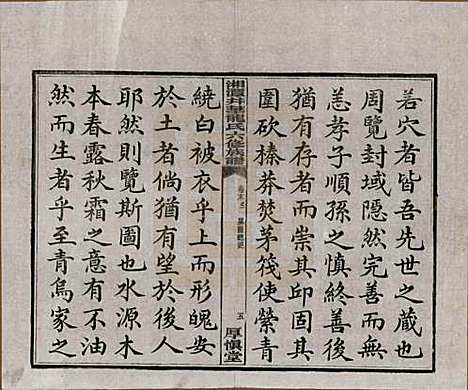 若穴者皆吾先世之藏也
周覽封域隱然完善而無
恙孝子順孫之慎終善後
猶有存者而崇其卬固其
圍砍榛莽焚茅筏使縈青
湘潭井里龍氏六修族譜
五
厚慎堂
繞白被衣乎上而形魄安
於土者倘猶有望於後人
耶然則覽斯圖也水源木
本春露秋霜之意有不油
然而生者乎至青烏家之